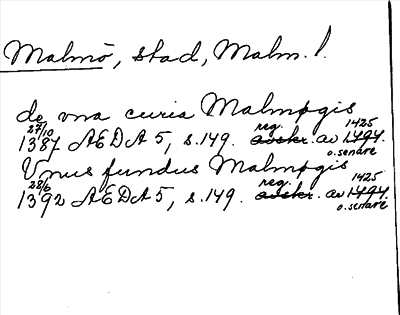 Malmö, stad, Malm. l.
de vna curia Malmøgis
27/10 reg. 1425
1387 AEDA 5, s. 149. avskr. av 1494.
o. senare
Vnus fundus Malmøgis
28/6 reg. 1425
1392 AEDA 5, s. 149. avskr. av 1494.
o. senare